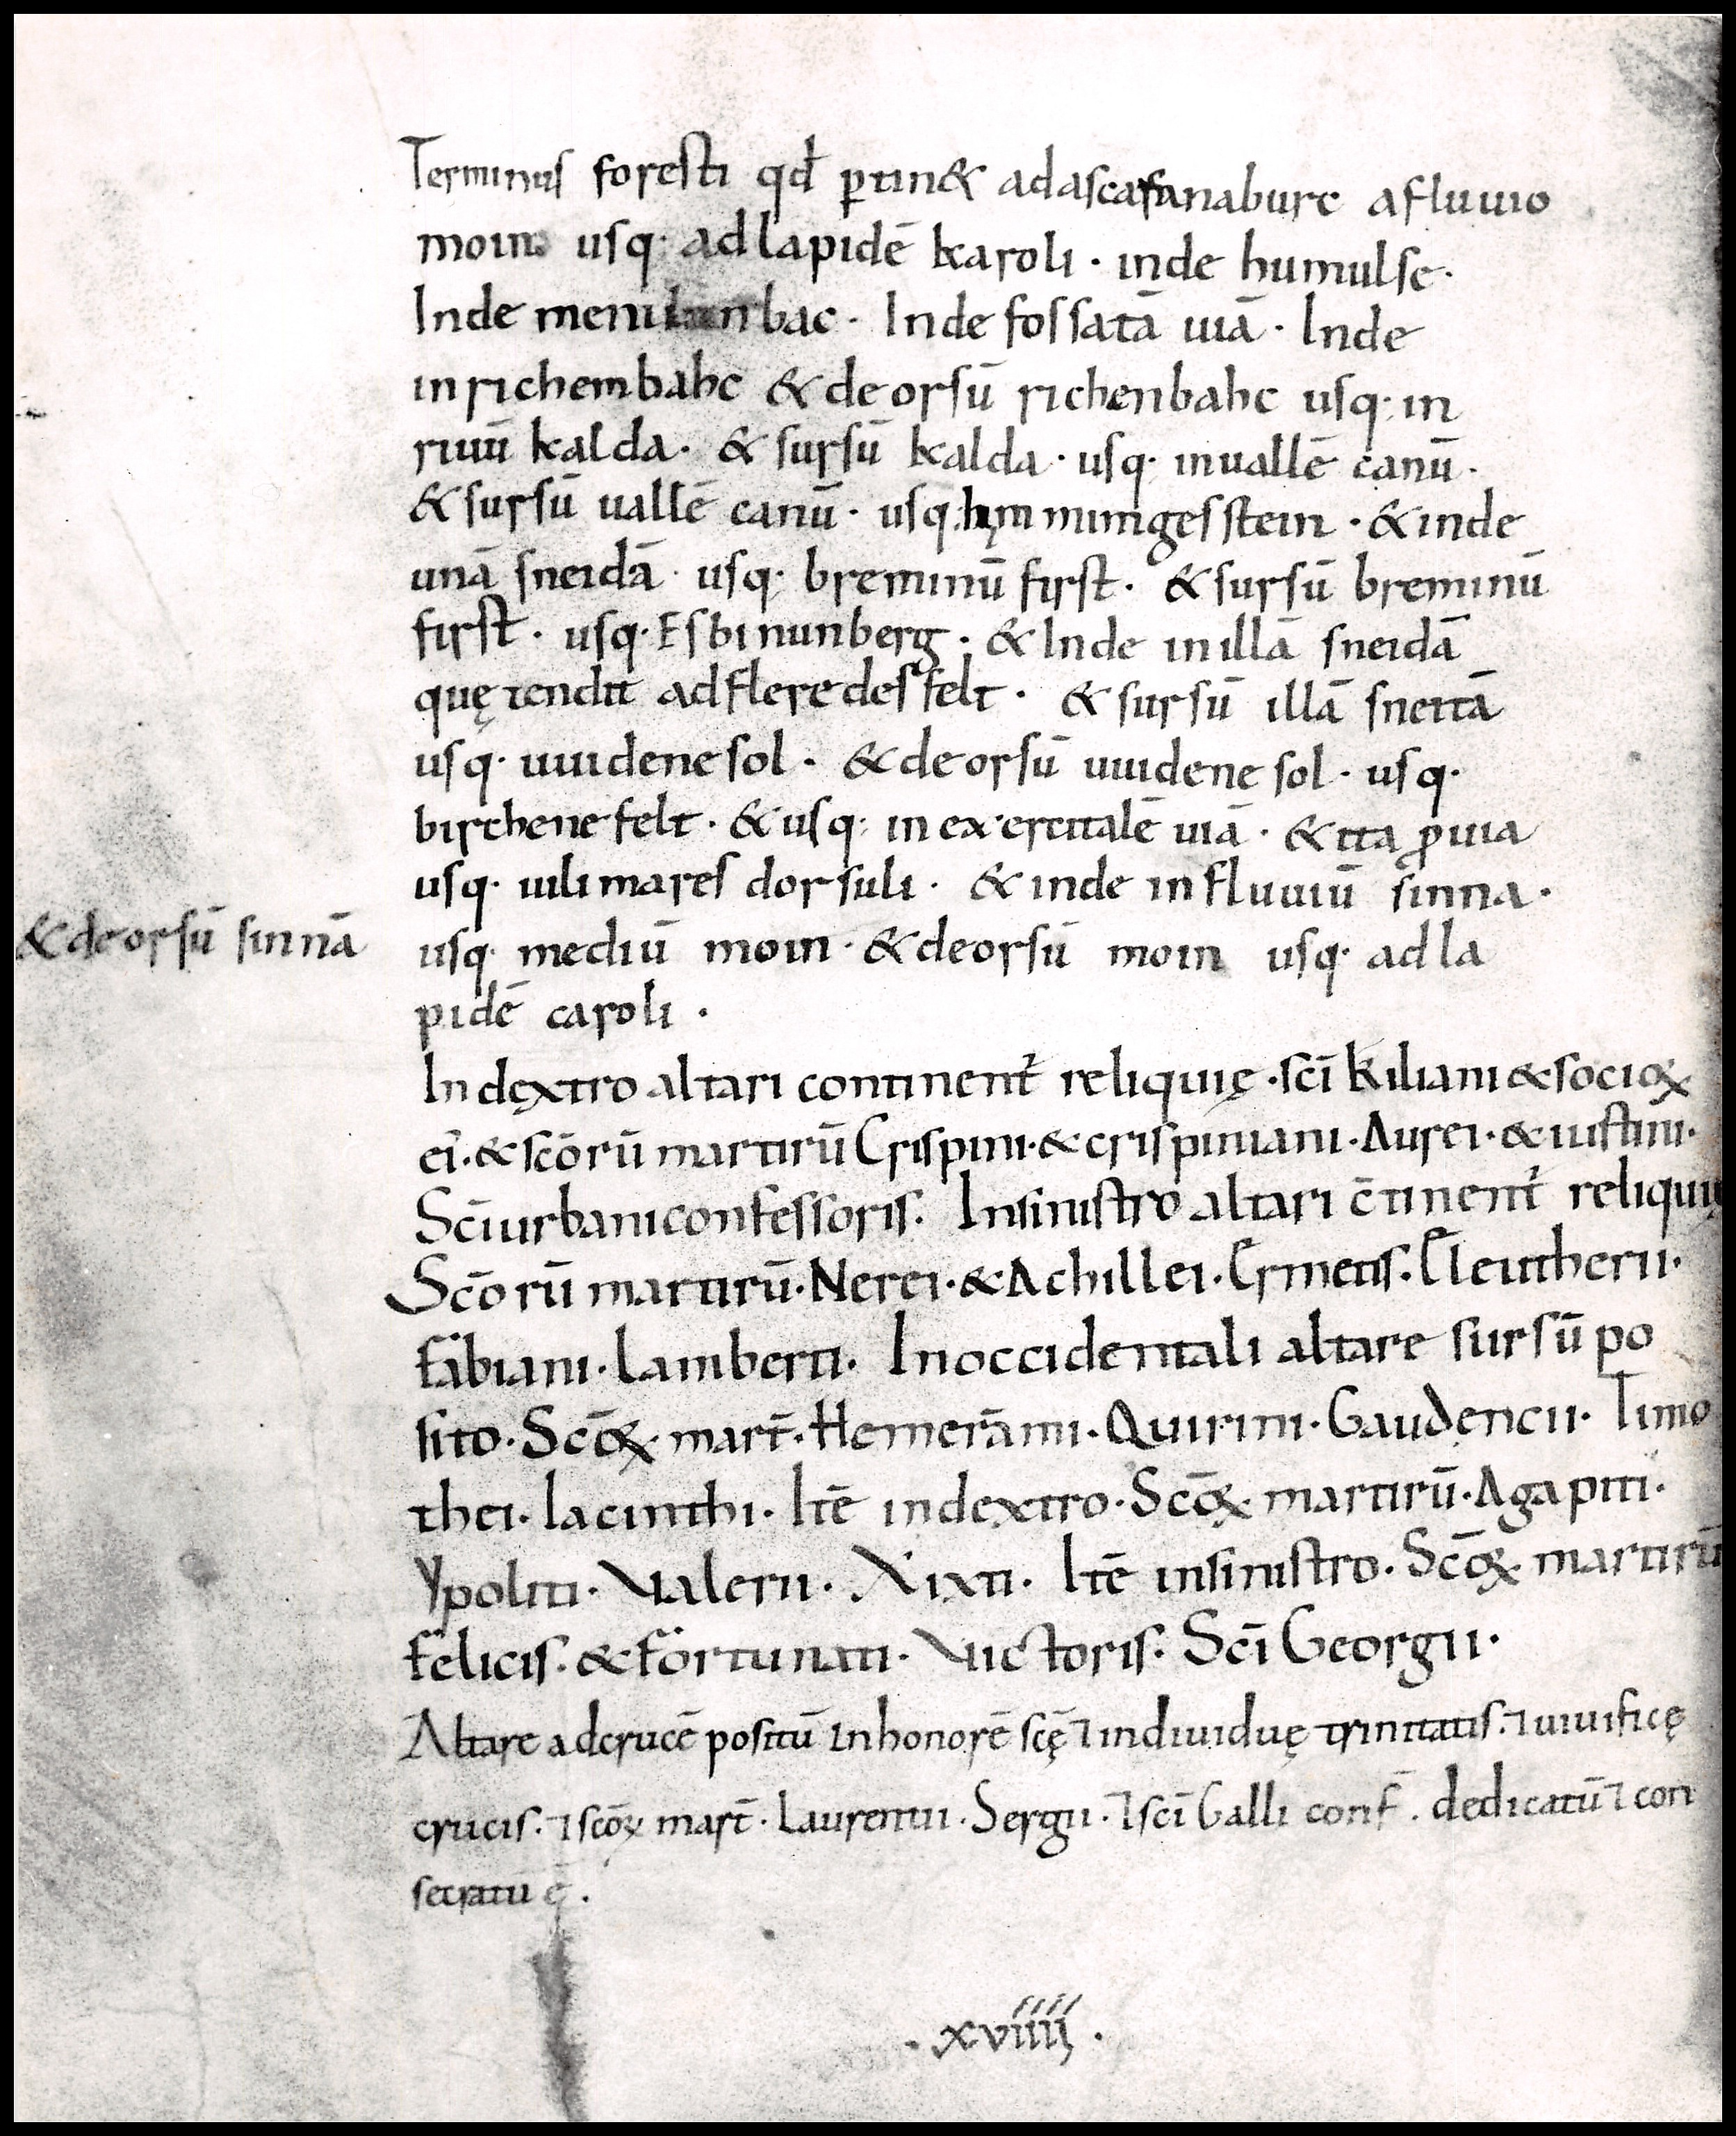 Terminus foresti qđ ꝑtin& adascafanaburc afluuio
moin usq· adlapidē karoli · inde humulse·
Inde bac · Inde fossatā uiā · Inde
inrichembahc & deorsū richenbahc usq· in
riuū kalda· & sursū kalda · usq· inuallē canū·
& sursū uallē canū · usq· &inde
unā sneidā · usq· breminū first· & sursū breminū
first · usq· Esbinunberg · & Inde inillā sneidā
quę tendit adfleredesfelt · & sursū illā sneitā
usq· uuidenesol · & deorsū uuidene sol · usq·
birchenefelt · & usq· inexercitalē uiā · & ita ꝓuia
usq· uilimares dorsuli · & inde influuiū sinna ·
& deorsū sinnā
usq· mediū moin · & deorsū moin usq· adla
pidē caroli ·
Indęxtro altari continent᷑ reliquię · sc̄i Kiliani & socioꝝ
ei᷑· & sc̄orū martirū Crispini· & crispiniani · Aurei · & iustini·
Sc̄i urbani confessoris· Insinistro altari c̄tinent᷑ reliquię
Sc̄orū martirū · Nerei · & Achillei · Ermetis · Eleutherii·
fabiani · Lamberti· Inoccidentali altare sursū po
sito · Sc̄oꝝ mart̄ · Hemerāmi · Quirini · Gaudencii · Timo
thei · Iacinthi · Itē indextro · Sc̄oꝝ martirū · Agapiti·
Ypoliti · Valerii · Xixti · Itē insinistro · Sc̄oꝝ martirū
felicis · & fortunati · Victoris· Sc̄i Georgii·
Altare adcrucē positū inhonorē sc̄ę ⁊ indiuiduę trinitatis · ⁊ uiuificę
crucis · ⁊ sc̄oꝝ mart̄ · Laurentii · Sergii · ⁊ sc̄i Galli conf̄ · dedicatū ⁊ con
secratū ē ·
· xviiij ·